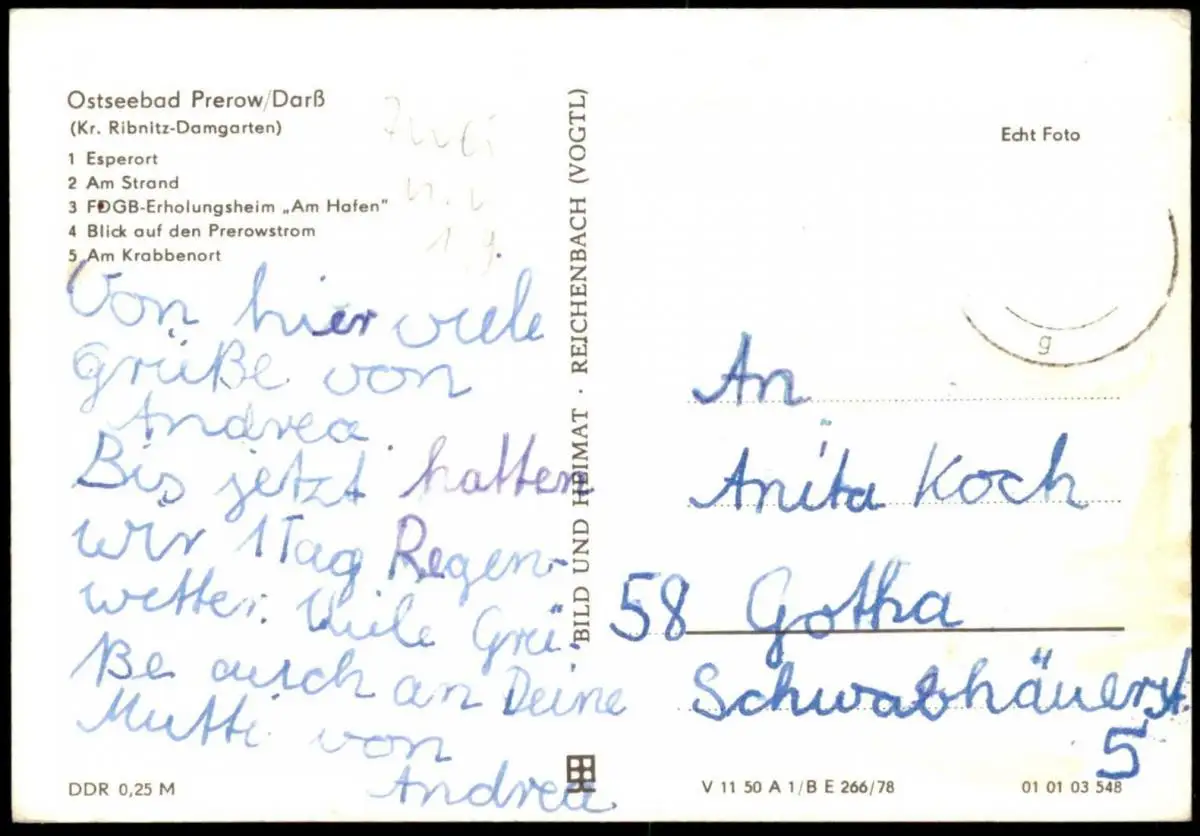 Ostseebad Prerow/Darß
(Kr. Ribnitz-Damgarten)
1 Esperort
2 Am Strand
3 FDGB-Erholungsheim „Am Hafen"
4 Blick auf den Prerowstrom
5 Am Krabbenort
Von hier viele
Grüße von
Andrea.
Bis jetzt hatten
wir 1 Tag Regen-
wetter. Viele Grü-
ße auch an Deine
Mutti von
Andrea
DDR 0,25 M
BILD UND HEIMAT · REICHENBACH (VOGTL)
Echt Foto
g
An
Anita Koch
58 Gotha
Schwabhäuerst.
5
V 11 50 A 1/B E 266/78
01 01 03 548